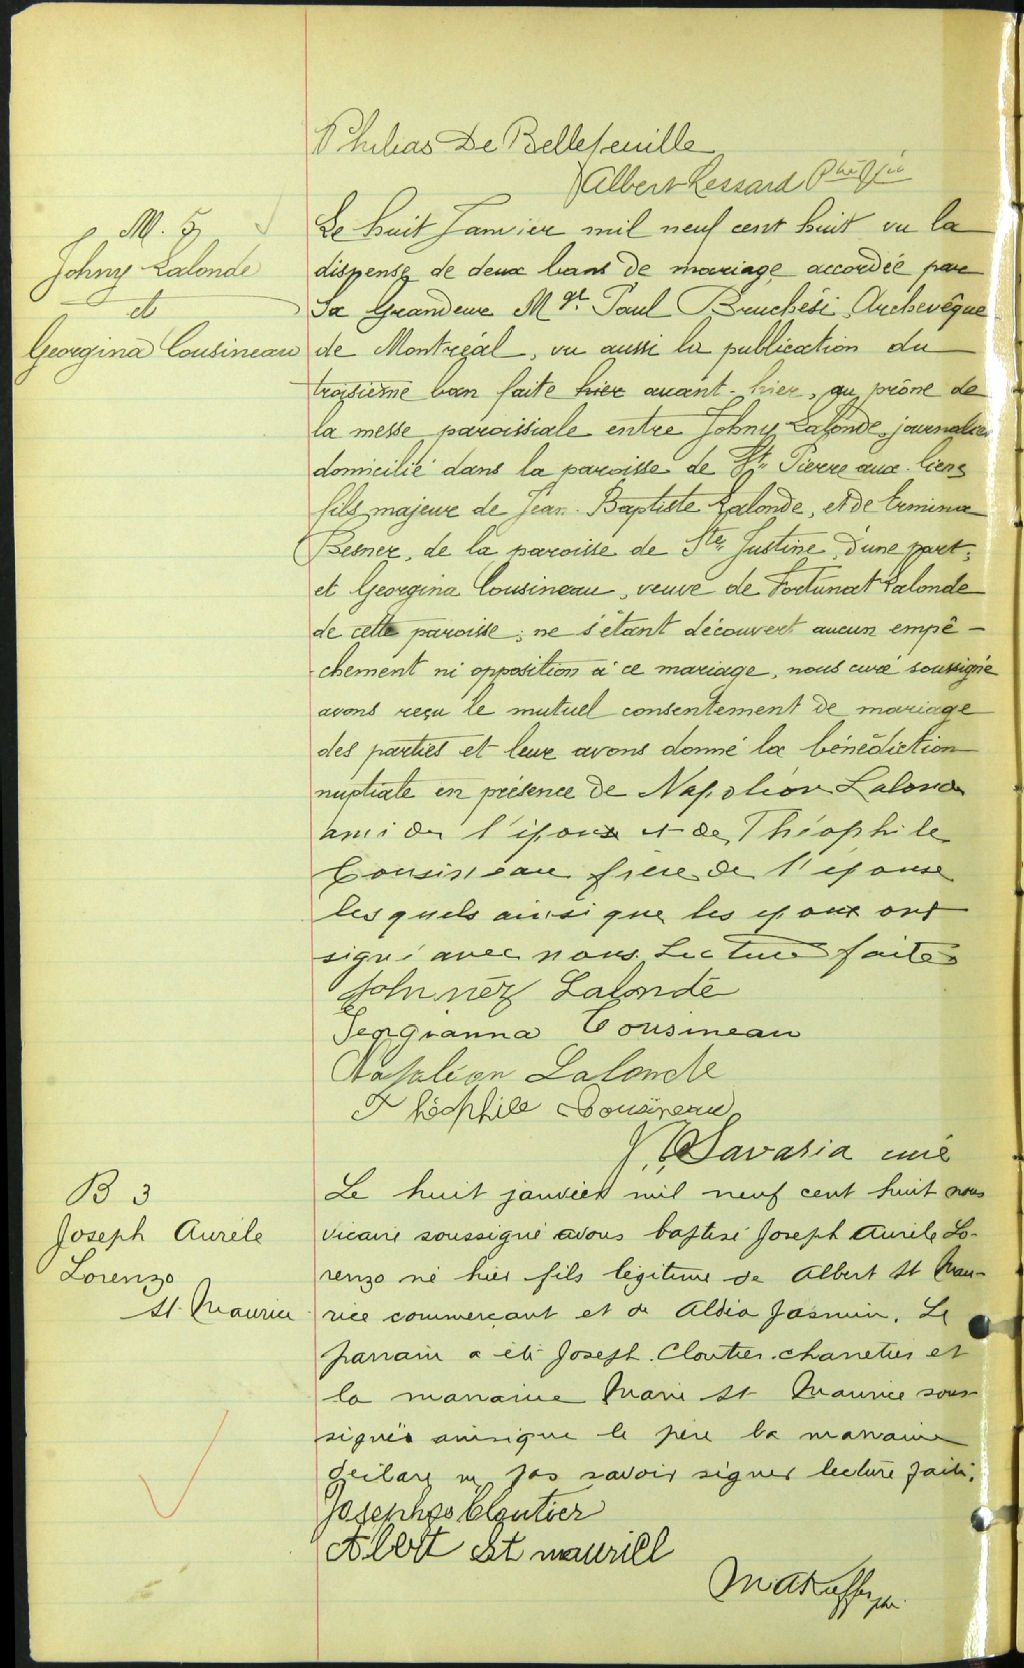 Philias De Bellefeuille
Albert Lessard Ptre Vic
M. 5
Johny Lalonde
et
Georgina Cousineau
Le huit Janvier mil neuf cent huit vu la
dispense de deux bans de mariage accordée par
Sa Grandeur Mgr. Paul Bruchési, Archevêque
de Montréal, vu aussi la publication du
troisième ban faite hier avant-hier, au prône de
la messe paroissiale entre Johny Lalonde, journalier
domicilié dans la paroisse de St. Pierre aux liens
fils majeur de Jean-Baptiste Lalonde, et de Ermina
Besner, de la paroisse de Ste Justine, d'une part;
et Georgina Cousineau, veuve de Fortunat Lalonde
de cette paroisse; ne s'étant découvert aucun empê-
-chement ni opposition à ce mariage, nous curé soussigné
avons reçu le mutuel consentement de mariage
des parties et leur avons donné la bénédiction
nuptiale en présence de Napoléon Lalonde
ami de l'époux et de Théophile
Cousineau frère de l'épouse
lesquels ainsi que les epoux ont
signé avec nous. Lecture faite
Johnnéz Lalonde
Georgianna Cousineau
Napoléon Lalonde
Théophile Cousineau
Savaria curé
B 3
Joseph Aurèle
Lorenzo
St-Maurice
Le huit janvier mil neuf cent huit nous
vicaire soussigné avons baptisé Joseph Aurèle Lo-
renzo né hier fils légitime de Albert St Mau-
rice commerçant et de Aldia Jasmin. Le
parrain a été Joseph Cloutier charretier et
la marraine Marie St Maurice sous-
signés ainsique le père la marraine
déclare ne pas savoir signer lecture faite.
Joseph Cloutier
Albert St mauricE